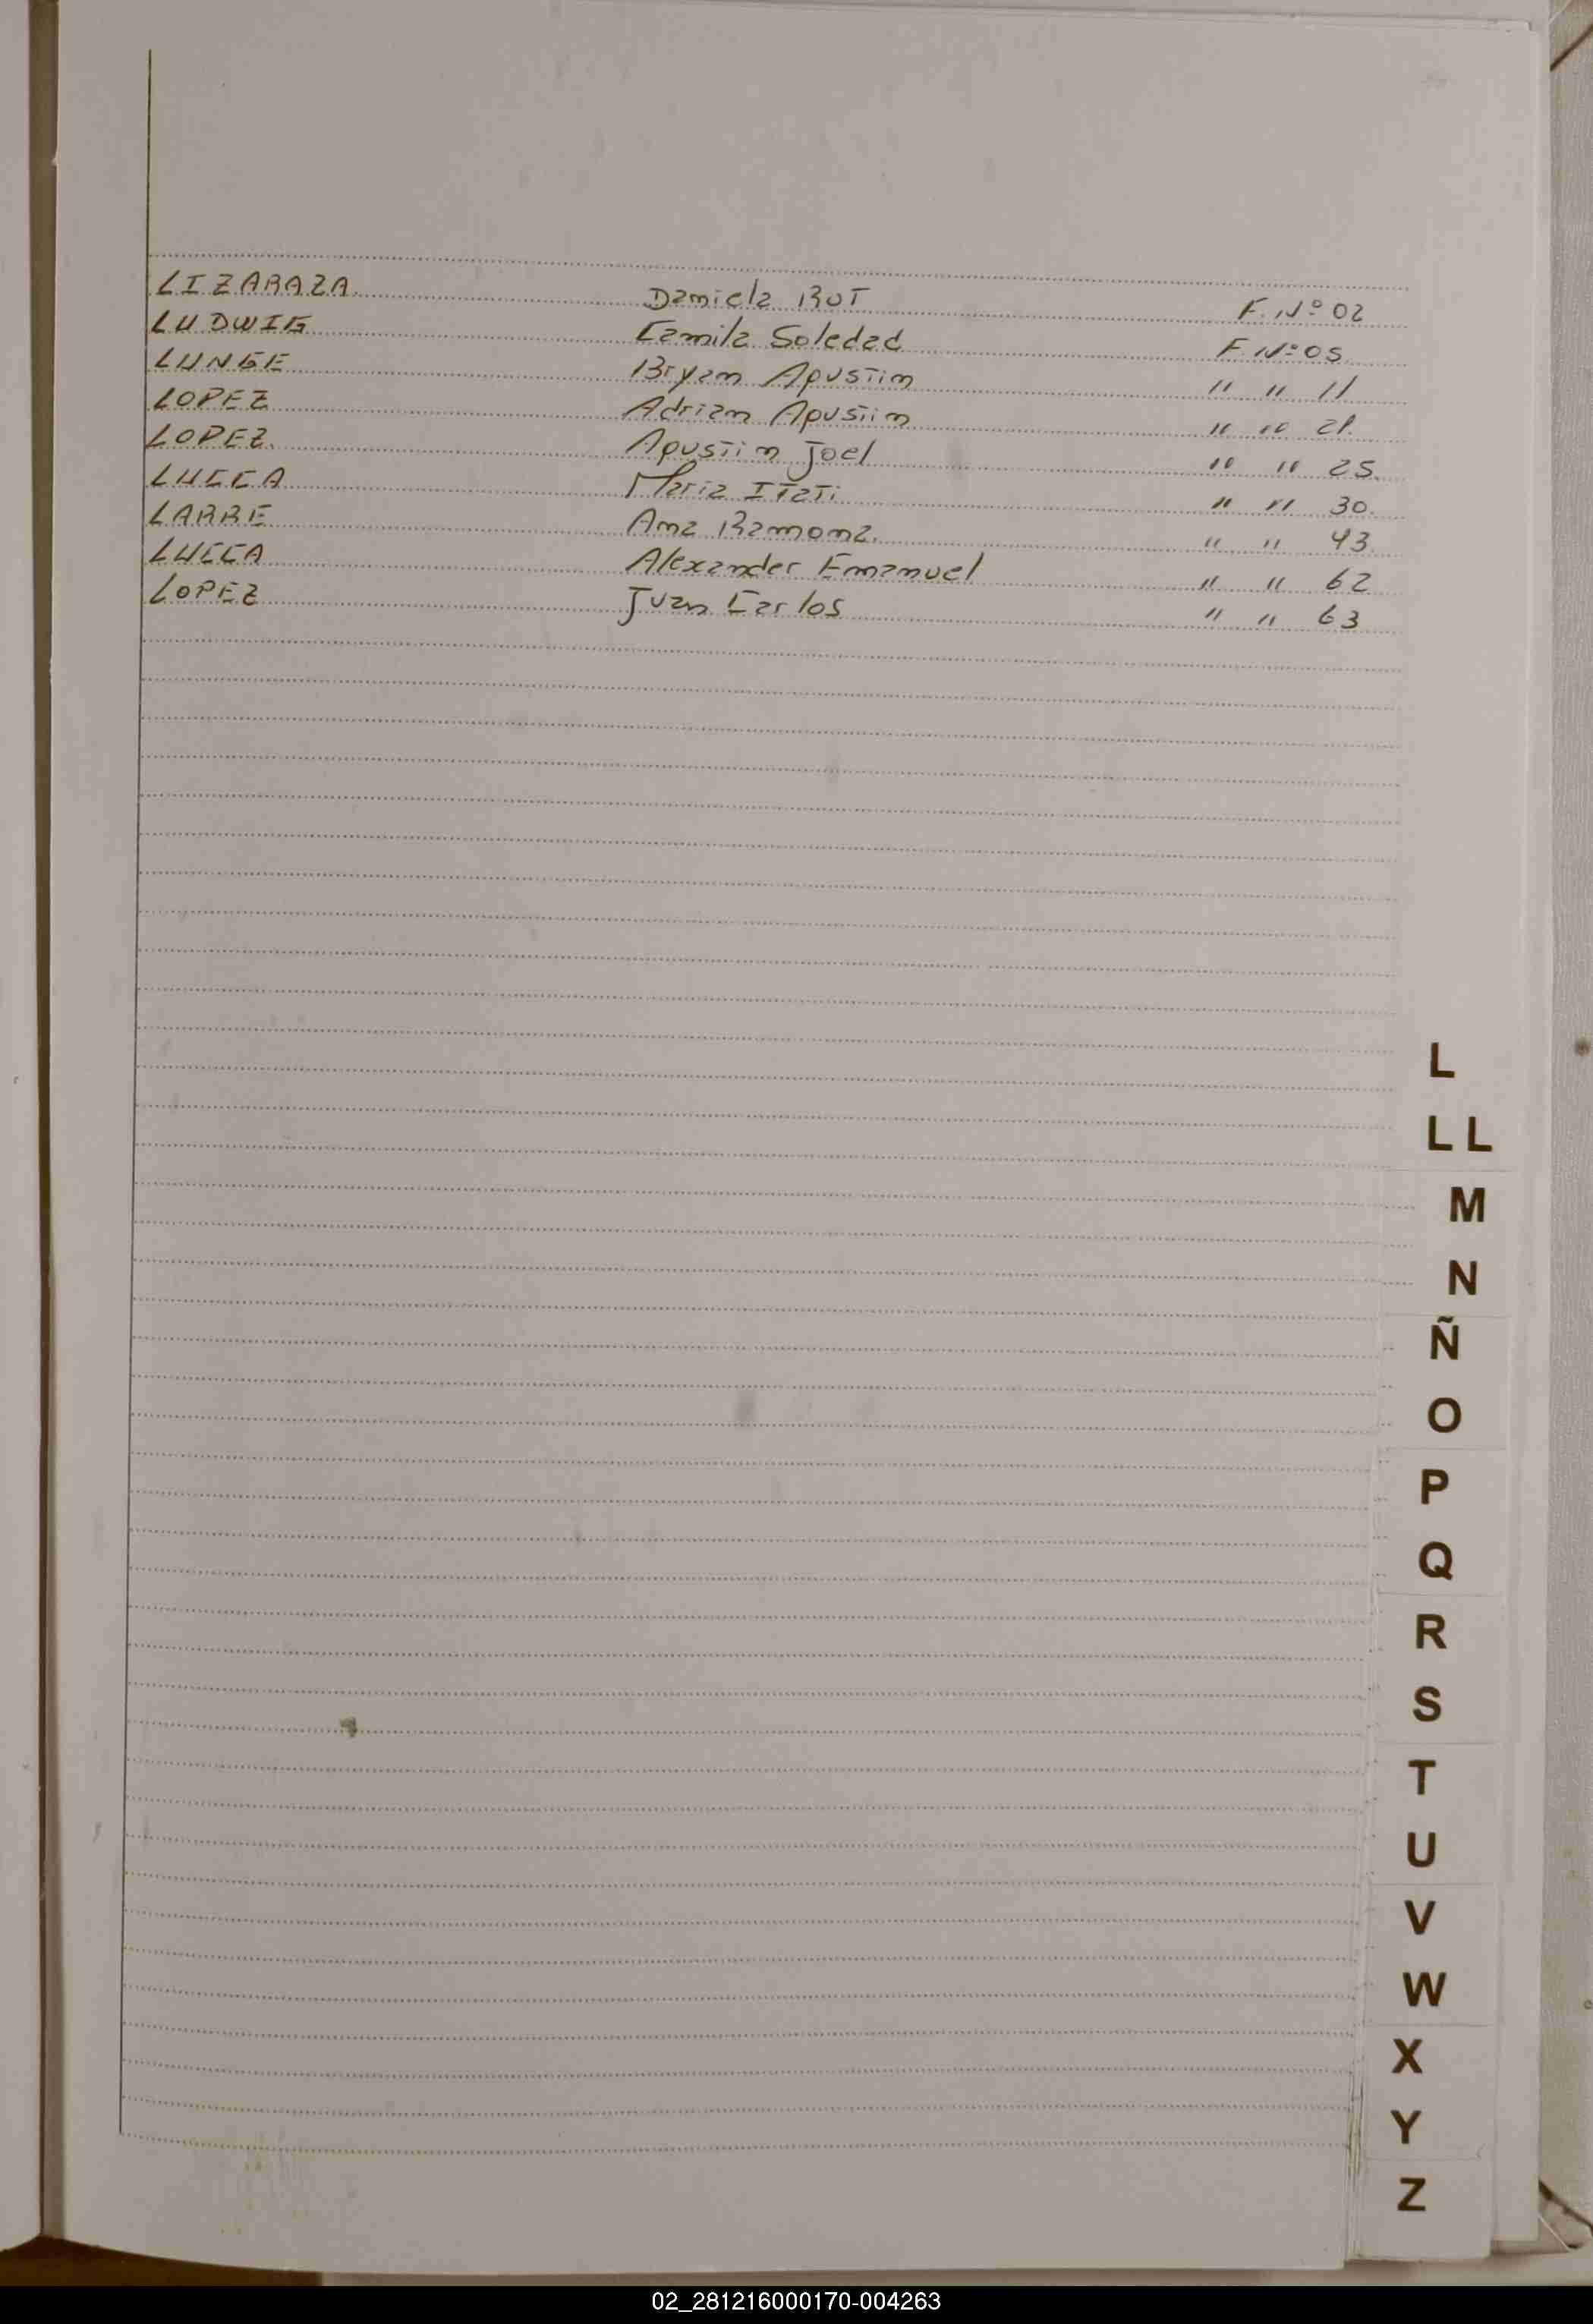 LIZARAZA. Daniela RUT F. Nº 02
LUDWIG Camila Soledad F. Nº 05
LUNGE Bryan Agustin " " 11
LOPEZ Adrian Agustin " " 21.
LOPEZ. Agustin Joel " " 25.
LUCCA Maria Itati " " 30.
LARRE Ana Ramona. " " 43.
LUCCA Alexander Emanuel " " 62
LOPEZ Juan Carlos " " 63
L
LL
M
N
Ñ
O
P
Q
R
S
T
U
V
W
X
Y
Z
02_281216000170-004263